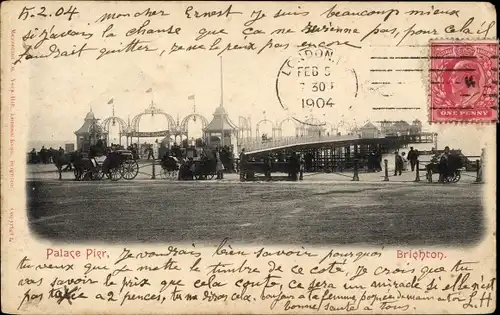 15.2.04 moncher Ernest. Je suis beaucoup mieux
si j'avais la chanse que ça ne revienne pas, pour cela il
faudrait quitter, je ne le peux pas encore
LONDON
FEB 5
7 30
1904
ONE PENNY
Palace Pier,
Brighton.
Je voudrais bien savoir pourquoi
tu veux que je mette le timbre de ce côté. Je crois que tu
vas savoir le prix que cela coute, ce sera un miracle si elle n'est
pas taxée à 2 pences, tu me diras cela. bonjour à la femme
bonne santé à tous. L.H